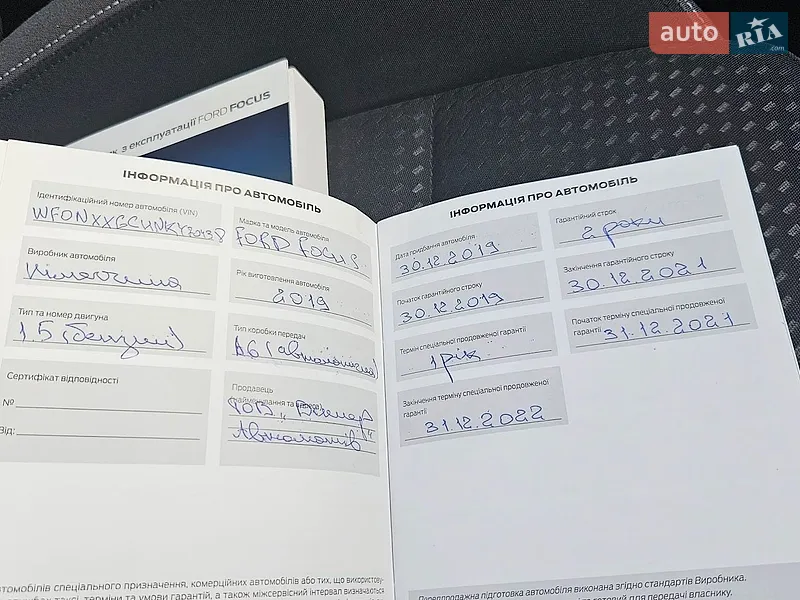 auto RIA .com
з експлуатації FORD FOCUS
ІНФОРМАЦІЯ ПРО АВТОМОБІЛЬ
Ідентифікаційний номер автомобіля (VIN)
Марка та модель автомобіля
FORD FOCUS
Виробник автомобіля
Німеччина
Рік виготовлення автомобіля
2019
Тип та номер двигуна
1.5 (бензин)
Тип коробки передач
А6 (автоматична)
Сертифікат відповідності
№
Від:
Продавець
ТОВ "Дилер
Автомотів"
ІНФОРМАЦІЯ ПРО АВТОМОБІЛЬ
Дата придбання автомобіля
30.12.2019
Гарантійний строк
2 роки
Початок гарантійного строку
30.12.2019
Закінчення гарантійного строку
30.12.2021
Термін спеціальної продовженої гарантії
1 рік
Початок терміну спеціальної продовженої
гарантії 31.12.2021
Закінчення терміну спеціальної продовженої
гарантії
31.12.2022
томобілів спеціального призначення, комерційних автомобілів або тих, що використову-
таксі, терміни та умови гарантій, а також міжсервісний інтервал визначаються
Передпродажна підготовка автомобіля виконана згідно стандартів Виробника.
готовий для передачі власнику.